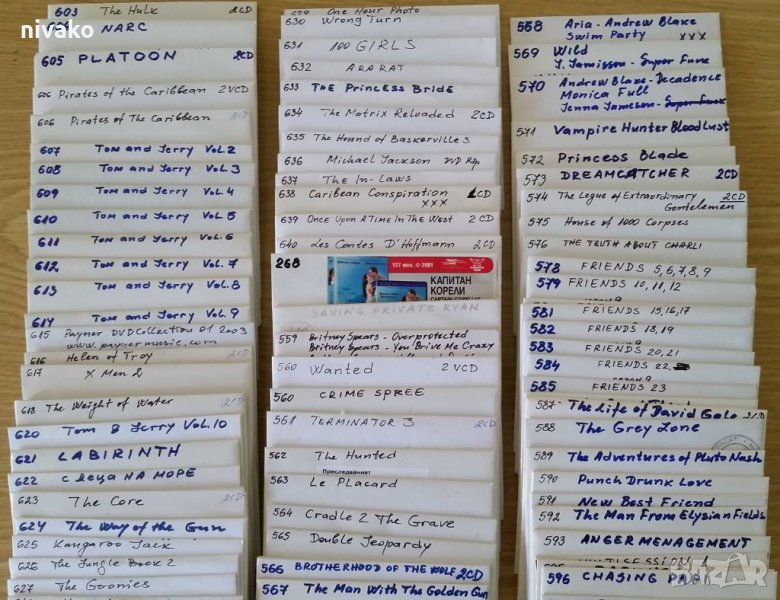 nivako
603 The Hulk 2CD
604 NARC
605 PLATOON 2CD
606 Pirates of the Caribbean 2VCD
606 Pirates of The Caribbean 2CD
607 Tom and Jerry Vol. 2
608 Tom and Jerry Vol. 3
609 Tom and Jerry Vol. 4
610 Tom and Jerry Vol. 5
611 Tom and Jerry Vol. 6
612 Tom and Jerry Vol. 7
613 Tom and Jerry Vol. 8
614 Tom and Jerry Vol. 9
615 Payner DVD Collection 01 2003
www.paynermusic.com
616 Helen of Troy 2CD
617 X Men 2
618 The Weight of Water 2CD
620 Tom & Jerry Vol. 10
621 LABIRINTH
622 С ДЕЦА НА МОРЕ
623 The Core 2CD
624 The Way of the Gun
625 Kangaroo Jack
626 The Jungle Book 2
627 The Goonies
629 One Hour Photo
630 Wrong Turn
631 100 GIRLS
632 ARARAT
633 The Princess Bride
634 The Matrix Reloaded 2CD
635 The Hound of Baskerville 3
636 Michael Jackson DVD Rip
637 The In-Laws
638 Caribean Conspiration 2CD
XXX
639 Once Upon A Time In The West 2CD
640 Les Contes D'Hoffmann 2CD
268 127 мин. © 2001
КАПИТАН
КОРЕЛИ
SAVING PRIVATE RYAN
559 Britney Spears - Overprotected
Britney Spears - You Drive Me Crazy
560 Wanted 2VCD
560 CRIME SPREE
561 TERMINATOR 3 2CD
562 The Hunted
Преследваният
563 Le Placard
564 Cradle 2 The Grave
565 Double Jeopardy
566 BROTHERHOOD OF THE WOLF 2CD
567 The Man With The Golden Gun
568 Aria - Andrew Blake
Swim Party XXX
569 Wild
J. Jamisson - Super Funk
570 Andrew Blake - Decadence
Monica Full
Jenna Jameson - Super Funk
571 Vampire Hunter Blood Lust
572 Princess Blade
573 DREAMCATCHER 2CD
574 The Legue of Extraordinary 2CD
Gentelemen
575 House of 1000 Corpses
576 THE TRUTH ABOUT CHARLI
578 FRIENDS 5,6,7,8,9
579 FRIENDS 10,11,12
581 FRIENDS 15,16,17
582 FRIENDS 18,19
583 FRIENDS 20,21
584 FRIENDS 22,
585 FRIENDS 23
587 The Life of David Gale
588 The Grey Zone
589 The Adventures of Pluto Nash
590 Punch Drunk Love
591 New Best Friend
592 The Man From Elysian Fields
593 ANGER MENAGEMENT
MULTISESSION 1
596 CHASING PAPI
BAZAR